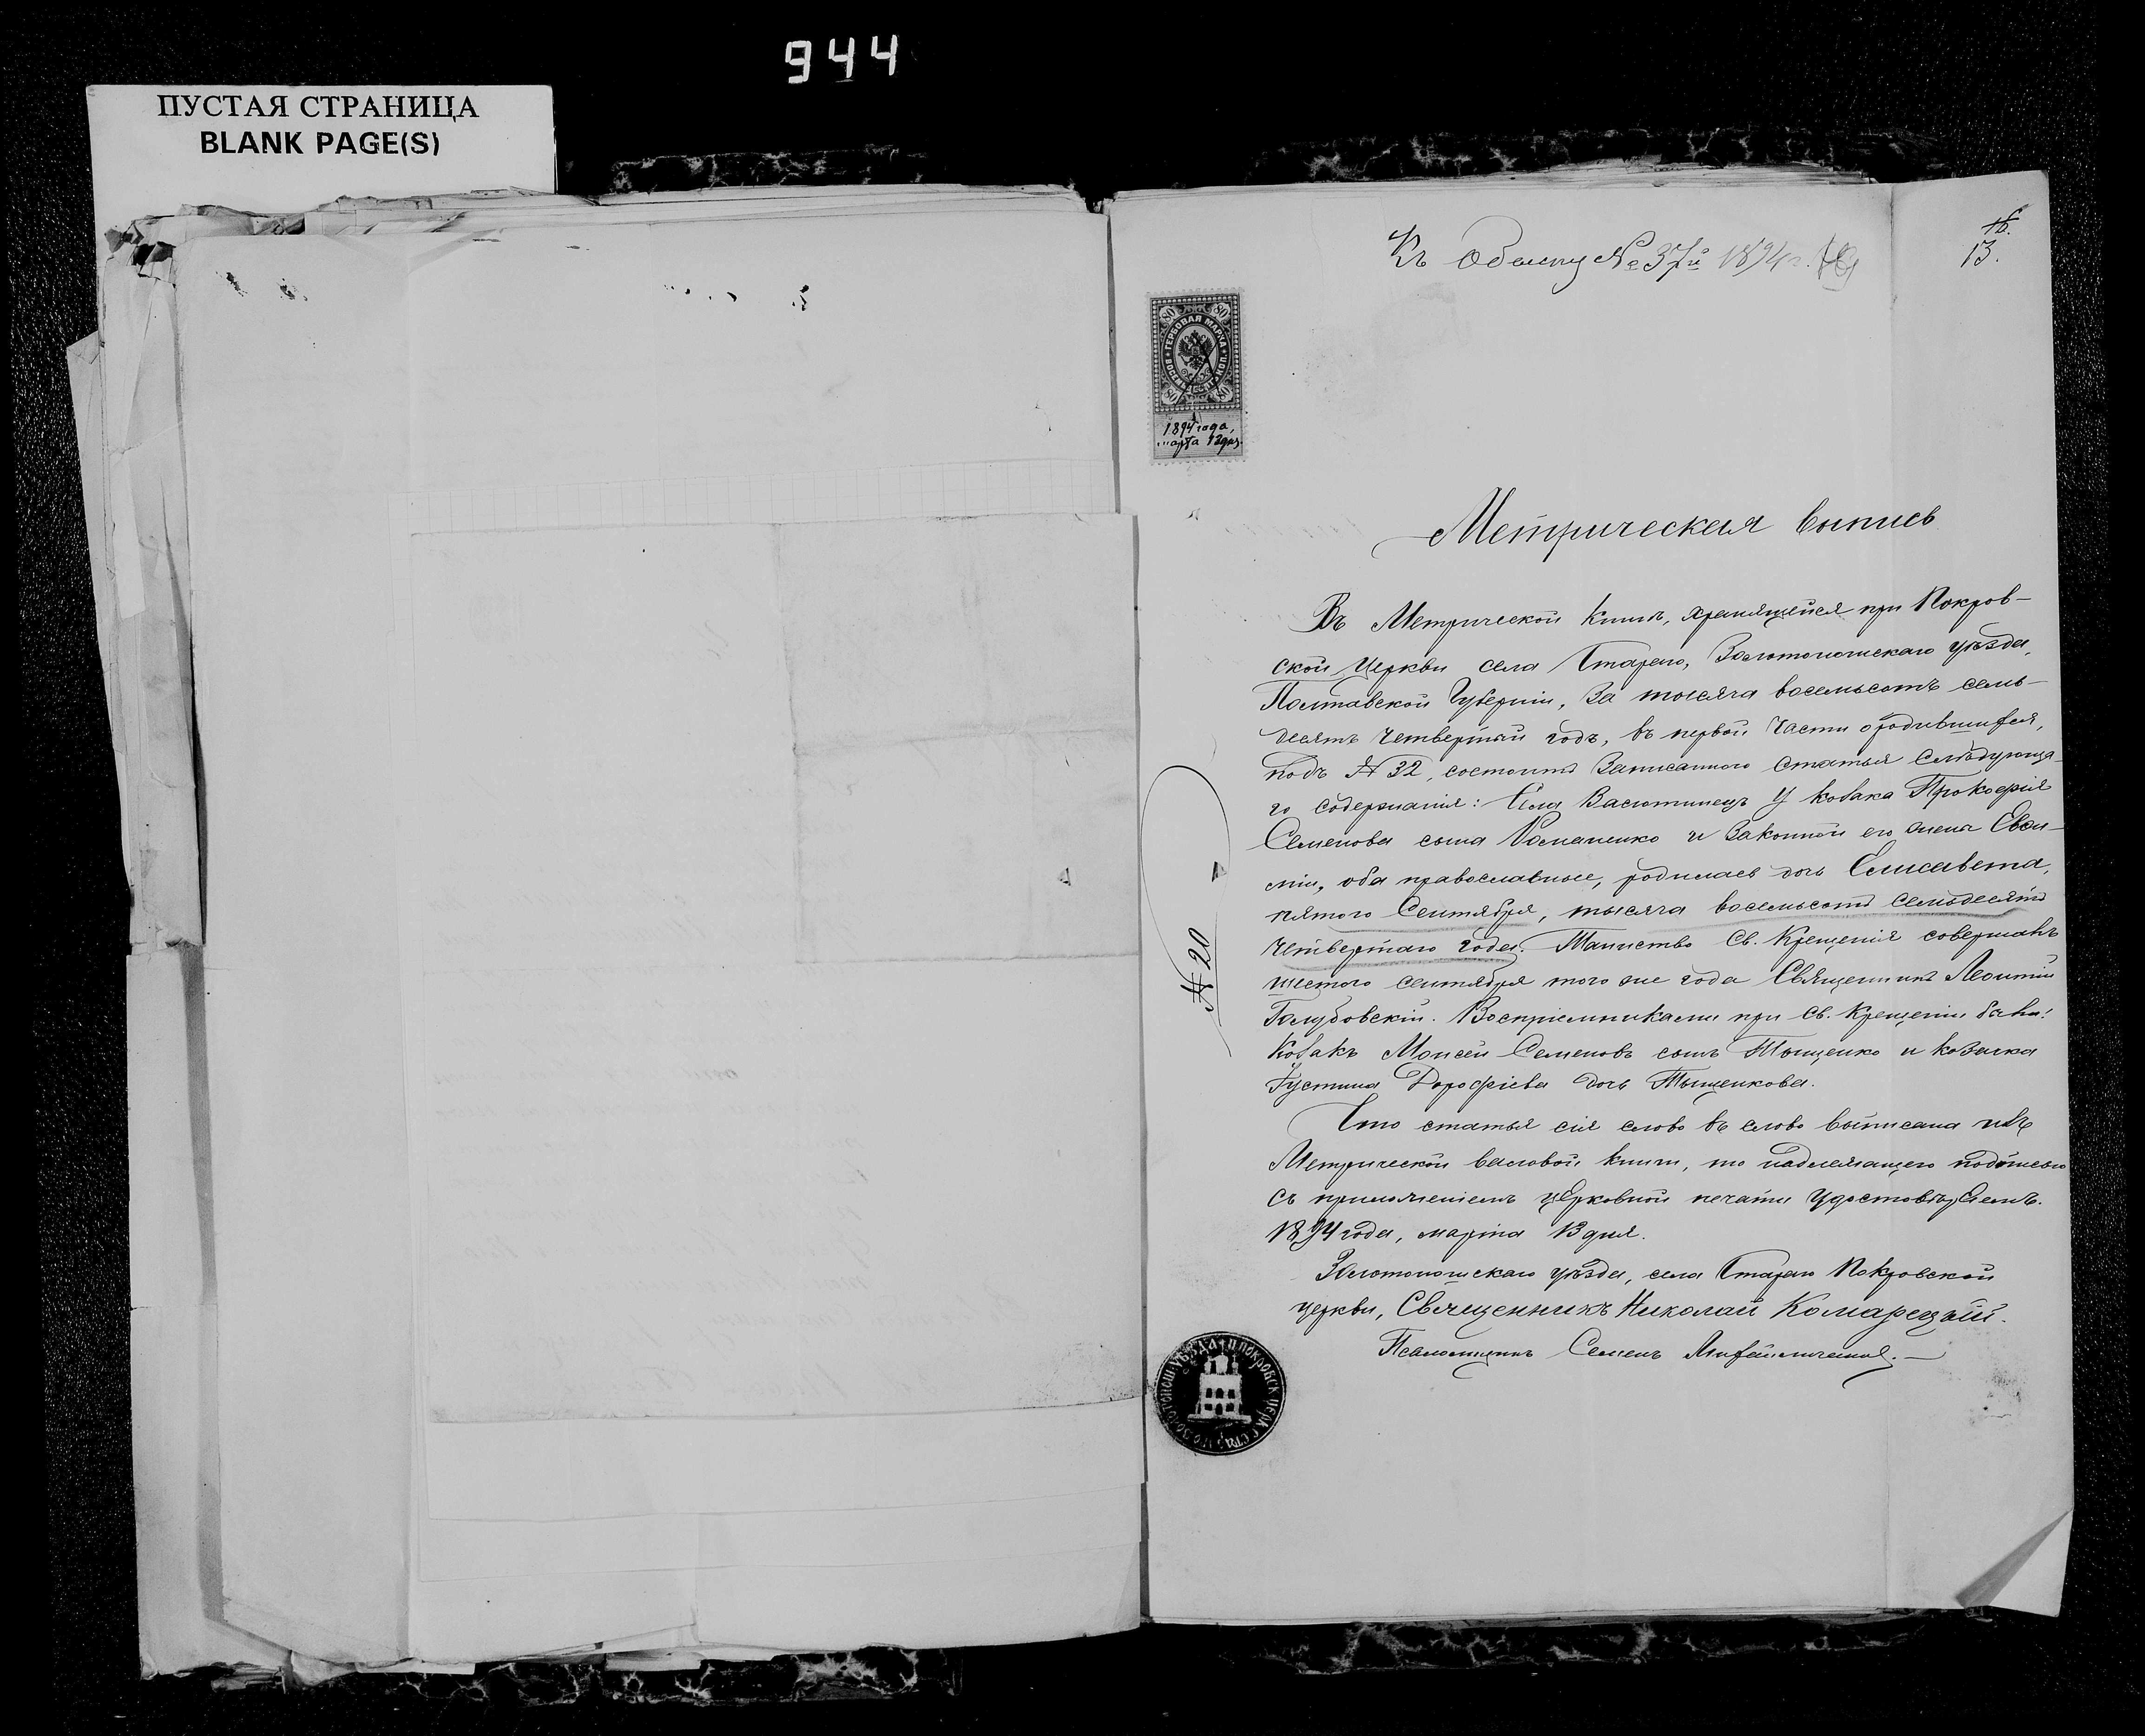 944
ПУСТАЯ СТРАНИЦА
BLANK PAGE(S)
Къ Обыску № 37й 1894 г.
16.
13.
80 80
ГЕРБОВАЯ МАРКА
80 80
1894 года,
марта 13 дня.
Метрическая выпись
Въ Метрической Книгѣ, хранящейся при Покров-
ской Церкви села Стараго, Золотоношскаго уѣзда,
Полтавской Губерніи, За тысяча восемьсотъ семь-
десятъ четвертый годъ, въ первой части о родившихся,
подъ № 32, состоитъ Записанною Статья слѣдующа-
го содержанія: Села Васютинецъ У козака Прокофія
Семенова сына Романенко и Законной его жены Евфи-
міи, оба православные, родилась дочь Елисавета,
пятого Сентября, тысяча восемьсотъ семьдесятъ
четвертаго года. Таинство Св. Крещенія совершалъ
шестого сентября того же года Священникъ Леонтій
Голубовскій. Воспріемниками при Св. Крещеніи были:
Козакъ Моисей Семеновъ сынъ Тыщенко и козачка
Іустина Дорофіева дочь Тыщенкова.
Что статья сія слово въ слово выписана изъ
Метрической книги, то надлежащею подписью
съ приложеніемъ церковной печати удостовѣряемъ.
1894 года, марта 13 дня.
Золотоношскаго уѣзда, села Стараго Покровской
церкви, Священникъ Николай Комарецкій.
Псаломщикъ Семенъ
№ 20